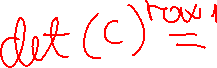 det (C) row 1 =